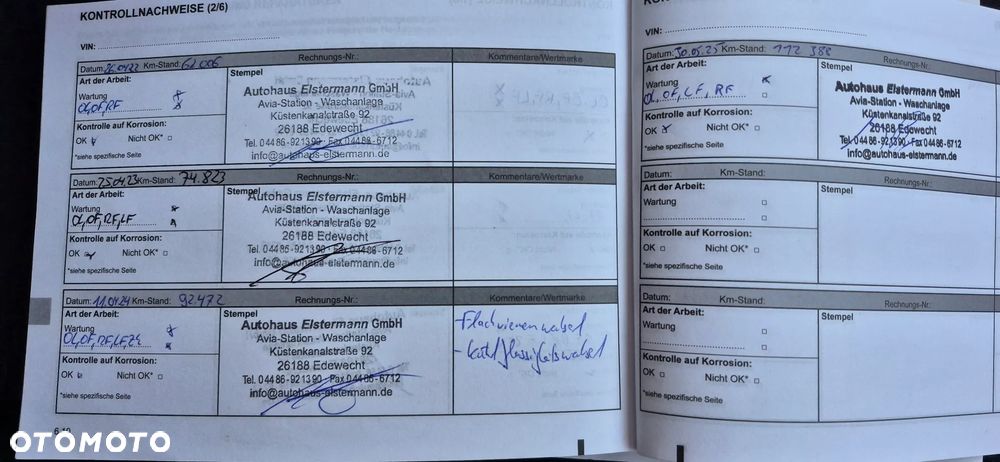 KONTROLLNACHWEISE (2/6)
VIN:
Datum: 26.04.22 Km-Stand: 61 006 Rechnungs-Nr.: Kommentare/Wertmarke
Art der Arbeit: Stempel
Wartung
Öl, OF, RF
Kontrolle auf Korrosion:
OK Nicht OK*
*siehe spezifische Seite
Autohaus Elstermann GmbH
Avia-Station - Waschanlage
Küstenkanalstraße 92
26188 Edewecht
Tel. 04486-921390 - Fax 04486-6712
info@autohaus-elstermann.de
Datum: 25.04.23 Km-Stand: 74.823 Rechnungs-Nr.: Kommentare/Wertmarke
Art der Arbeit: Stempel
Wartung
Öl, OF, RF, LF
Kontrolle auf Korrosion:
OK Nicht OK*
*siehe spezifische Seite
Autohaus Elstermann GmbH
Avia-Station - Waschanlage
Küstenkanalstraße 92
26188 Edewecht
Tel. 04486-921390 - Fax 04486-6712
info@autohaus-elstermann.de
Datum: 11.04.24 Km-Stand: 92472 Rechnungs-Nr.: Kommentare/Wertmarke
Art der Arbeit: Stempel
Wartung
Öl, OF, RF, LF
Kontrolle auf Korrosion:
OK Nicht OK*
*siehe spezifische Seite
Autohaus Elstermann GmbH
Avia-Station - Waschanlage
Küstenkanalstraße 92
26188 Edewecht
Tel. 04486-921390 - Fax 04486-6712
info@autohaus-elstermann.de
VIN:
Datum: 30.05.25 Km-Stand: 112 388 Rechnungs-Nr.:
Art der Arbeit: Stempel
Wartung
Öl, OF, LF, RF
Kontrolle auf Korrosion:
OK Nicht OK*
*siehe spezifische Seite
Autohaus Elstermann GmbH
Avia-Station - Waschanlage
Küstenkanalstraße 92
26188 Edewecht
Tel. 04486-921390 - Fax 04486-6712
info@autohaus-elstermann.de
Datum: Km-Stand: Rechnungs-Nr.:
Art der Arbeit: Stempel
Wartung
Kontrolle auf Korrosion:
OK Nicht OK*
*siehe spezifische Seite
Datum: Km-Stand: Rechnungs-Nr.:
Art der Arbeit: Stempel
Wartung
Kontrolle auf Korrosion:
OK Nicht OK*
*siehe spezifische Seite
OTOMOTO